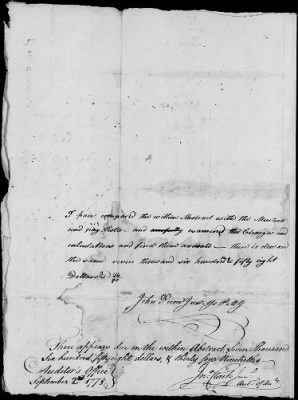 I have compared the within Abstract with the Musters
and pay Rolls and carefully examined the Charges and
calculations and find them accurate - there is due on
the same seven thousand six hundred & fifty eight
Dollars
John Pierce Junr
There appears due on the within Abstract, seven thousand
Six hundred fifty eight dollars, & thirty four Ninetieths
Auditor's Office
September 2nd 1778